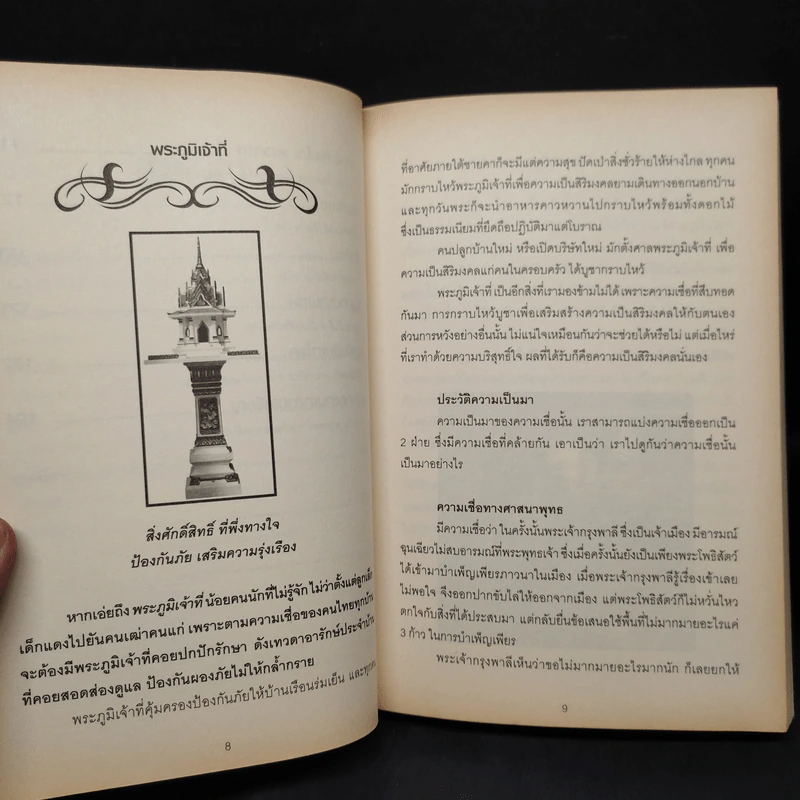 พระภูมิเจ้าที่
สิ่งศักดิ์สิทธิ์ ที่พึ่งทางใจ
ป้องกันภัย เสริมความรุ่งเรือง
หากเอ่ยถึง พระภูมิเจ้าที่ น้อยคนนักที่ไม่รู้จัก ไม่ว่าตั้งแต่ลูกเล็ก
เด็กแดงไปยันคนเฒ่าคนแก่ เพราะตามความเชื่อของคนไทยทุกบ้าน
จะต้องมีพระภูมิเจ้าที่คอยปกปักรักษา ดังเทวดาอารักษ์ประจำบ้าน
ที่คอยสอดส่องดูแล ป้องกันผองภัยไม่ให้กล้ำกราย
พระภูมิเจ้าที่คุ้มครองป้องกันภัยให้บ้านเรือนร่มเย็น และทุกคน
8
ที่อาศัยภายใต้ชายคาก็จะมีแต่ความสุข ปัดเป่าสิ่งชั่วร้ายให้ห่างไกล ทุกคน
มักกราบไหว้พระภูมิเจ้าที่เพื่อความเป็นสิริมงคลยามเดินทางออกนอกบ้าน
และทุกวันพระก็จะนำอาหารคาวหวานไปกราบไหว้พร้อมทั้งดอกไม้
ซึ่งเป็นธรรมเนียมที่ยึดถือปฏิบัติมาแต่โบราณ
คนปลูกบ้านใหม่ หรือเปิดบริษัทใหม่ มักตั้งศาลพระภูมิเจ้าที่ เพื่อ
ความเป็นสิริมงคลแก่คนในครอบครัว ได้บูชากราบไหว้
พระภูมิเจ้าที่ เป็นอีกสิ่งที่เรามองข้ามไม่ได้ เพราะความเชื่อที่สืบทอด
กันมา การกราบไหว้บูชาเพื่อเสริมสร้างความเป็นสิริมงคลให้กับตนเอง
ส่วนการหวังอย่างอื่นนั้น ไม่แน่ใจเหมือนกันว่าจะช่วยได้หรือไม่ แต่เมื่อไหร่
ที่เราทำด้วยความบริสุทธิ์ใจ ผลที่ได้รับก็คือความเป็นสิริมงคลนั่นเอง
ประวัติความเป็นมา
ความเป็นมาของความเชื่อนั้น เราสามารถแบ่งความเชื่อออกเป็น
2 ฝ่าย ซึ่งมีความเชื่อที่คล้ายกัน เอาเป็นว่า เราไปดูกันว่าความเชื่อนั้น
เป็นมาอย่างไร
ความเชื่อทางศาสนาพุทธ
มีความเชื่อว่า ในครั้งนั้นพระเจ้ากรุงพาลี ซึ่งเป็นเจ้าเมือง มีอารมณ์
ขุนเฉียวไม่สบอารมณ์ที่พระพุทธเจ้า ซึ่งเมื่อครั้งนั้นยังเป็นเพียงพระโพธิสัตว์
ได้เข้ามาบำเพ็ญเพียรภาวนาในเมือง เมื่อพระเจ้ากรุงพาลีรู้เรื่องเข้าเลย
ไม่พอใจ จึงออกปากขับไล่ให้ออกจากเมือง แต่พระโพธิสัตว์ก็ไม่หวั่นไหว
ตกใจกับสิ่งที่ได้ประสบมา แต่กลับยื่นข้อเสนอใช้พื้นที่ไม่มากมายอะไรแค่
3 ก้าว ในการบำเพ็ญเพียร
พระเจ้ากรุงพาลีเห็นว่าขอไม่มากมายอะไรมากนัก ก็เลยยกให้
9